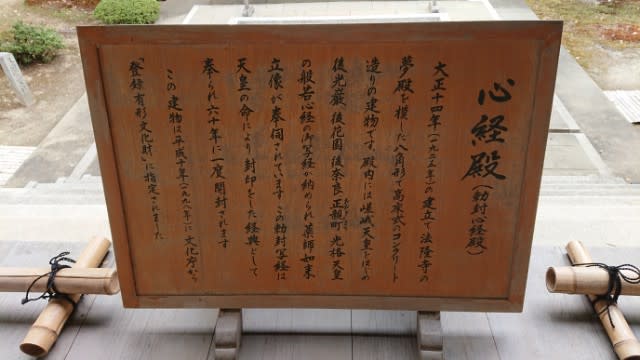 心経殿(勅封心経殿)
大正十四年(一九二五年)の建立で法隆寺の
夢殿を模した八角形で高床式のコンクリート
造りの建物です。殿内には嵯峨天皇をはじめ
後光厳 後花園 後奈良 正親町 光格天皇
の般若心経の御写経が納められ薬師如来
立像が奉伺されています。この勅封写経は
天皇の命により封印をした経典として
奉られ六十年に一度開封されます
この建物は平成十年(一九九八年)に文化庁から
「登録有形文化財」に指定されました